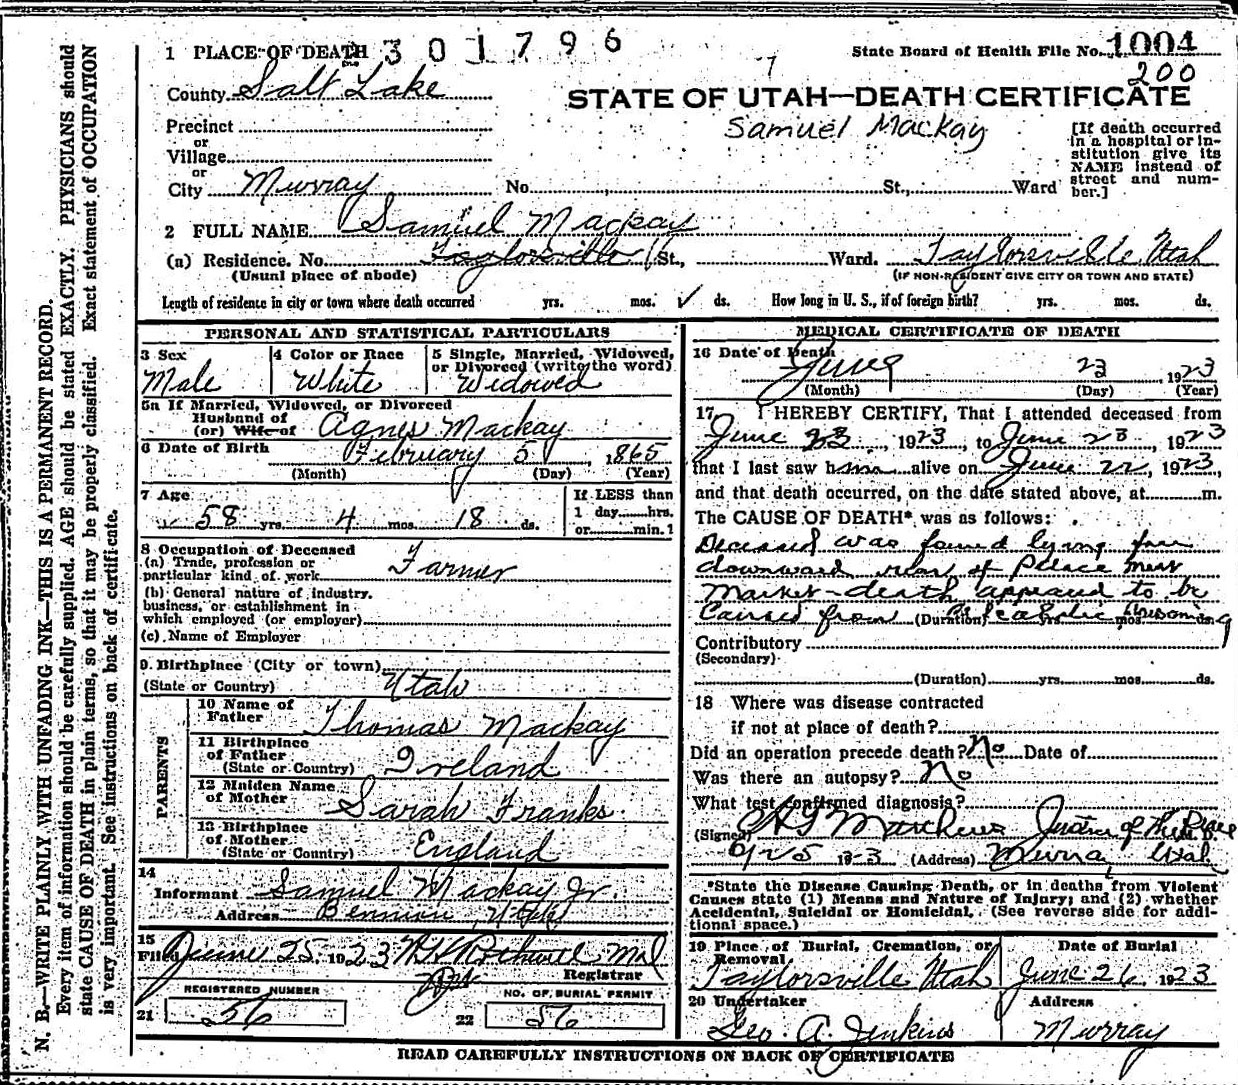 1 PLACE OF DEATH 301796
State Board of Health File No. 1004
200
County Salt Lake
STATE OF UTAH—DEATH CERTIFICATE
Samuel Mackay
Precinct
or
Village
or
City Murray No. , St., Ward
[If death occurred
in a hospital or in-
stitution give its
NAME instead of
street and num-
ber.]
2 FULL NAME Samuel Mackay
(a) Residence. No. Taylorsville St., Ward. Taylorsville Utah
(Usual place of abode) (IF NON-RESIDENT GIVE CITY OR TOWN AND STATE)
Length of residence in city or town where death occurred yrs. mos. ✓ ds. How long in U. S., if of foreign birth? yrs. mos. ds.
PERSONAL AND STATISTICAL PARTICULARS
3 Sex
Male
4 Color or Race
White
5 Single, Married, Widowed,
or Divorced (write the word)
Widowed
5a If Married, Widowed, or Divorced
Husband of
(or) Wife of Agnes Mackay
6 Date of Birth February 5, 1865
(Month) (Day) (Year)
7 Age
58 yrs. 4 mos. 18 ds.
If LESS than
1 day hrs.
or min.?
8 Occupation of Deceased
(a) Trade, profession or
particular kind of work Farmer
(b) General nature of industry,
business, or establishment in
which employed (or employer)
(c) Name of Employer
9 Birthplace (City or town)
(State or Country) Utah
PARENTS
10 Name of
Father Thomas Mackay
11 Birthplace
of Father
(State or Country) Ireland
12 Maiden Name
of Mother Sarah Franks
13 Birthplace
of Mother
(State or Country) England
14
Informant Samuel Mackay Jr.
Address Bennion, Utah
15
Filed June 25. 1923
Registrar
REGISTERED NUMBER
21 56
NO. OF BURIAL PERMIT
22 56
MEDICAL CERTIFICATE OF DEATH
16 Date of Death June 23, 1923
(Month) (Day) (Year)
17 I HEREBY CERTIFY, That I attended deceased from
June 23, 1923, to June 23, 1923
that I last saw him alive on June 22, 1923,
and that death occurred, on the date stated above, at m.
The CAUSE OF DEATH* was as follows:
Deceased was found lying face
downward rear of Palace Meat
Market—death appeared to be
Caused from Alcoholic Poisoning
(Duration) yrs. mos. ds.
Contributory
(Secondary)
(Duration) yrs. mos. ds.
18 Where was disease contracted
if not at place of death?
Did an operation precede death? No Date of
Was there an autopsy? No
What test confirmed diagnosis?
(Signed) Matthews Justice of the Peace M.D.
6/25 1923 (Address) Murray Utah
*State the Disease Causing Death, or in deaths from Violent
Causes state (1) Means and Nature of Injury; and (2) whether
Accidental, Suicidal or Homicidal. (See reverse side for addi-
tional space.)
19 Place of Burial, Cremation, or
Removal
Taylorsville Utah
Date of Burial
June 26 1923
20 Undertaker
Geo. A. Jenkins
Address
Murray
READ CAREFULLY INSTRUCTIONS ON BACK OF CERTIFICATE
N. B.—WRITE PLAINLY WITH UNFADING INK—THIS IS A PERMANENT RECORD.
Every item of information should be carefully supplied. AGE should be stated EXACTLY. PHYSICIANS should
state CAUSE OF DEATH in plain terms, so that it may be properly classified. Exact statement of OCCUPATION
is very important. See instructions on back of certificate.